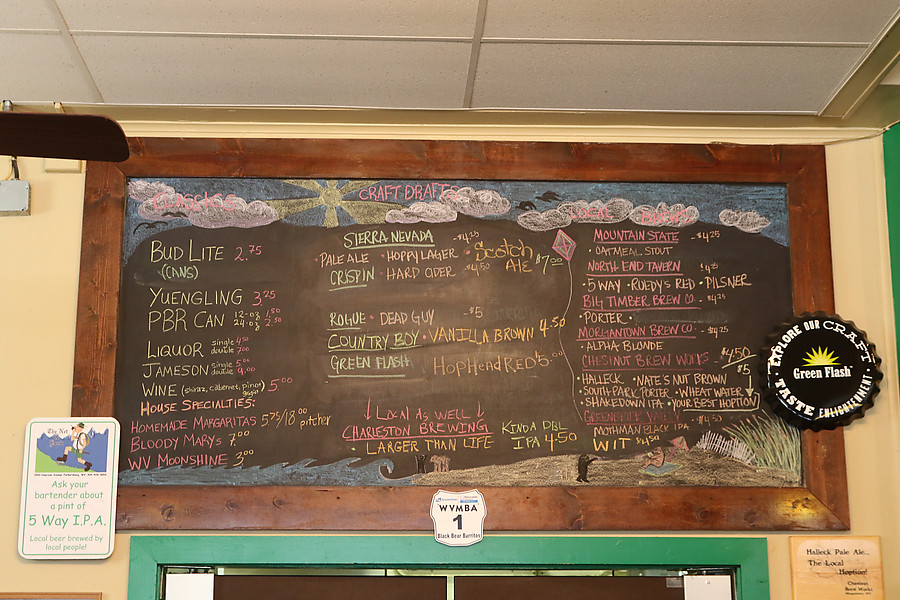 CLASSICS
BUD LITE 2.75
(CANS)
YUENGLING 3.25
PBR CAN 12-oz 1.50
24-oz 2.50
LIQUOR single 4.50
double 7.00
JAMESON single 5.00
double 9.00
WINE (shiraz, cabernet, pinot) 5.00
HOUSE SPECIALTIES:
HOMEMADE MARGARITAS 5.75/18.00 pitcher
BLOODY MARYS 7.00
WV MOONSHINE 3.00
CRAFT DRAFTS
SIERRA NEVADA -$4.25
• PALE ALE • HOPPY LAGER
SCOTCH ALE $7.00
CRISPIN • HARD CIDER $4.50
ROGUE • DEAD GUY -$5
COUNTRY BOY • VANILLA BROWN 4.50
GREEN FLASH HOP HEAD RED 5.00
↓LOCAL AS WELL↓
CHARLESTON BREWING
• LARGER THAN LIFE
KINDA DBL
IPA 4.50
LOCAL DRAFTS
MOUNTAIN STATE -$4.25
• OATMEAL STOUT
NORTH END TAVERN $4.25
• 5 WAY • ROEDY'S RED • PILSNER
BIG TIMBER BREW CO. -$4.25
• PORTER •
MORGANTOWN BREW CO. -$4.25
• ALPHA BLONDE
CHESTNUT BREW WORKS $4.50
$5
• HALLECK • NATE'S NUT BROWN
• SOUTH PARK PORTER • WHEAT WATER
• SHAKEDOWN IPA • YOUR BEST HOPTION
GREENBRIER VALLEY -$4.50
MOTHMAN BLACK IPA
WIT $4.50
EXPLORE OUR CRAFT
Green Flash
TASTE ENLIGHTENMENT
The Net
Ask your
bartender about
a pint of
5 Way I.P.A.
Local beer brewed by
local people!
WVMBA
1
Black Bear Burritos
Halleck Pale Ale...
The Local
Hoption!
Chestnut
Brew Works